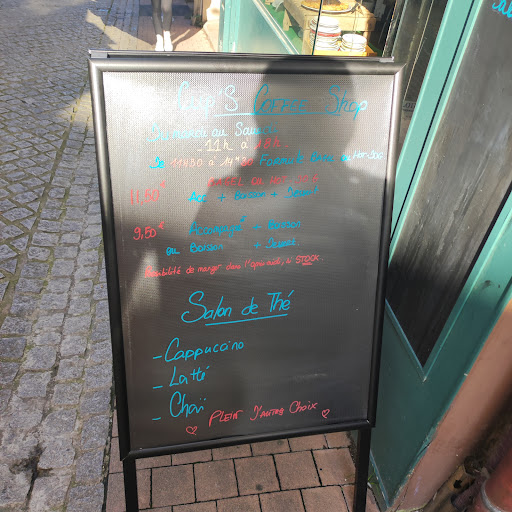 Coffee Shop
au
11h à 18h
De 11H30 à 14H30 FORMULE BAGEL ou HOT-DOG
11,50€
+ Boisson + Dessert
9,50€ + Boisson
ou Boisson + Dessert
Possibilité de manger dans l'après midi, si STOCK.
Salon de Thé
- Cappuccino
- Latté
- Chaï
PLEIN D'AUTRES CHOIX